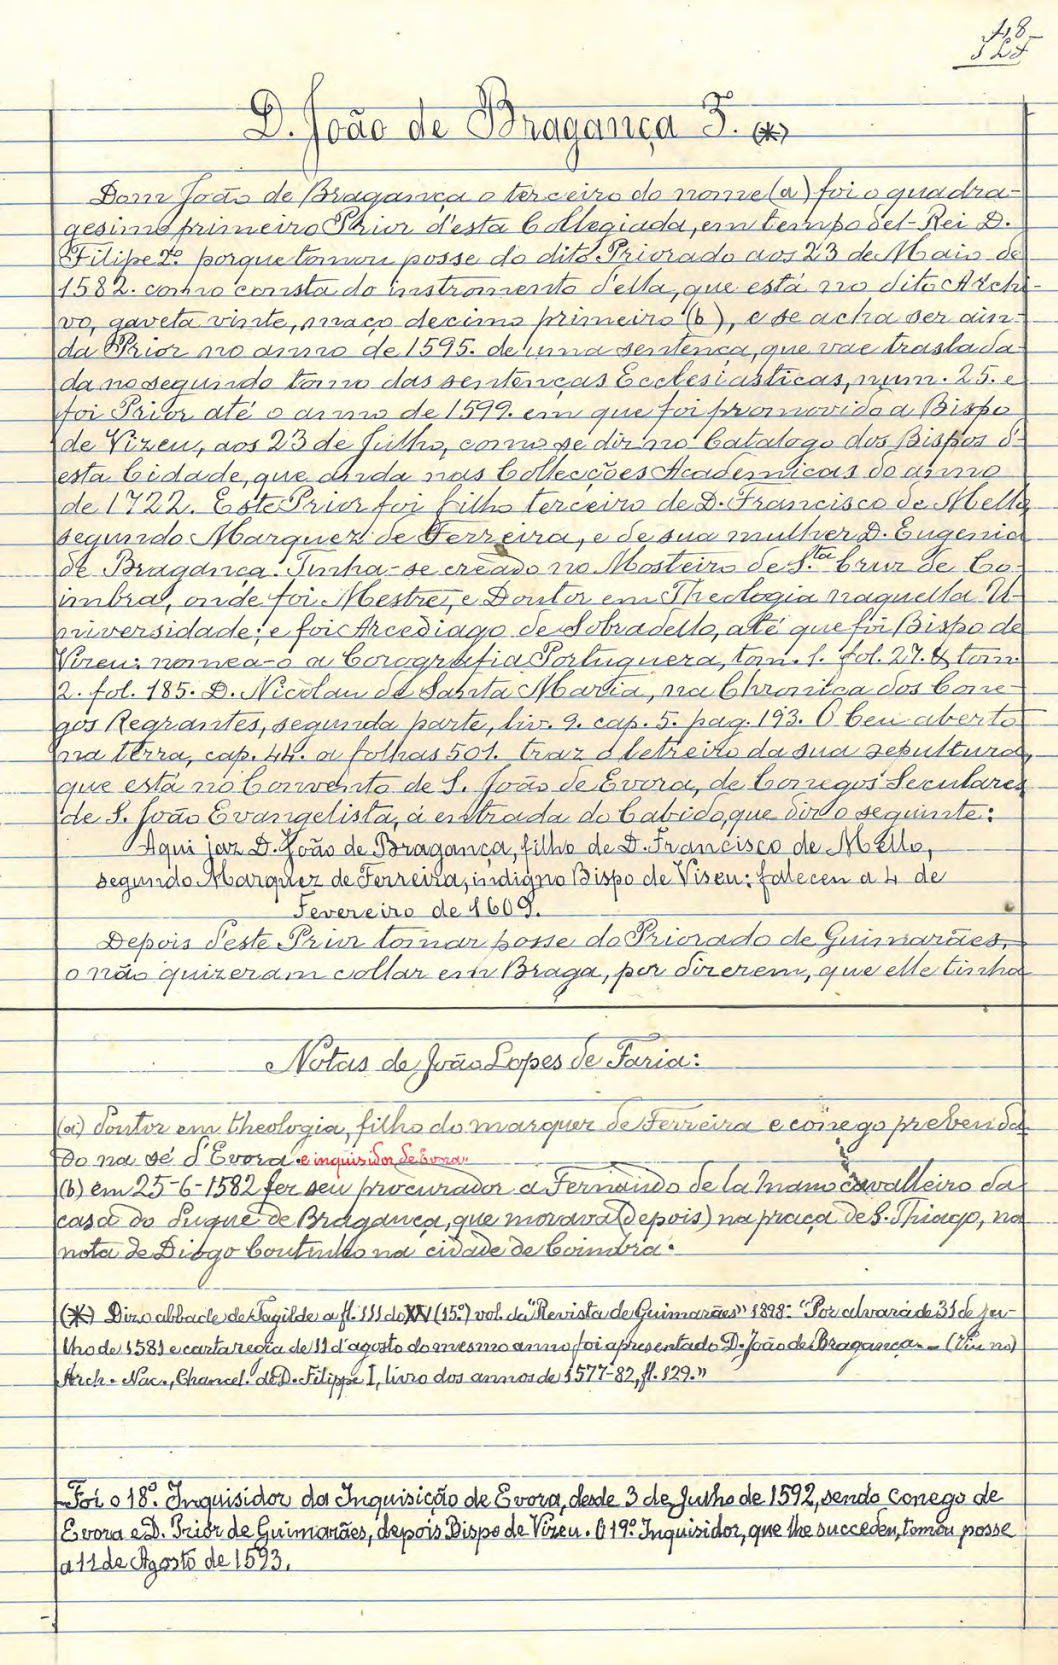 48-
JLF
D. João de Bragança 3º. (*)
Dom João de Bragança o terceiro do nome (a) foi o quadra-
gesimo primeiro Prior d'esta Collegiada, em tempo del-Rei D.
Filipe 2º. porque tomou posse do dito Priorado aos 23 de Maio de
1582. como consta do instromento d'ella, que está no dito Archi-
vo, gaveta vinte, maço decimo primeiro (b), e se acha ser ain-
da Prior no anno de 1595. de uma sentença, que vae traslada-
da no segundo tomo das sentenças Ecclesiasticas, num. 25. e
foi Prior até o anno de 1599. em que foi promovido a Bispo
de Vizeu, aos 23 de Julho, como se diz no Catalogo dos Bispos d'-
esta Cidade, que anda nas Collecções Academicas do anno
de 1722. Este Prior foi filho terceiro de D. Francisco de Mello
segundo Marquez de Ferreira, e de sua mulher D. Eugenia
de Bragança. Tinha-se creado no Mosteiro de S.ta Cruz de Co-
imbra, onde foi Mestre, e Doutor em Theologia naquella U-
niversidade; e foi Arcediago de Sobradello, até que foi Bispo de
Vizeu: nomea-o a Corografia Portugueza, tom. 1. fol. 27. & tom.
2. fol. 185. D. Nicolau de Santa Maria, na Chronica dos Cone-
gos Regrantes, segunda parte, liv. 9. cap. 5. pag. 193. O Ceu aberto
na terra, cap. 44. a folhas 501. traz o letreiro da sua sepultura,
que está no Convento de S. João de Evora, de Conegos Seculares
de S. João Evangelista, á entrada do Cabido, que diz o seguinte:
Aqui jaz D. João de Bragança, filho de D. Francisco de Mello,
segundo Marquez de Ferreira, indigno Bispo de Viseu: faleceu a 4 de
Fevereiro de 1609.
Depois d'este Prior tomar posse do Priorado de Guimarães,
o não quizeram collar em Braga, por dizerem, que elle tinha
Notas de João Lopes de Faria:
(a) doutor em theologia, filho do marquez de Ferreira e cónego prebenda-
do na sé d'Evora. e inquisidor de Evora.
(b) em 25-6-1582 fez seu procurador a Fernando de la Mano cavalleiro da
casa do Duque de Bragança, que morava (depois) na praça de S. Thiago, na
nota de Diogo Coutinho na cidade de Coimbra.
(*) Diz o abbade de Tagilde a fl. 111 do XV (15º) vol. da "Revista de Guimarães" 1898: "Por alvará de 31 de ju-
lho de 1581 e carta regia de 11 d'agosto do mesmo anno foi apresentado D. João de Bragança. - (Viu no)
Arch. Nac., Chancel. de D. Filippe I, livro dos annos de 1577-82, fl. 129."
Foi o 18º. Inquisidor da Inquisição de Evora, desde 3 de Julho de 1592, sendo conego de
Evora e D. Prior de Guimarães, depois Bispo de Vizeu. O 19º. Inquisidor, que lhe succedeu, tomou posse
a 11 de Agosto de 1593.